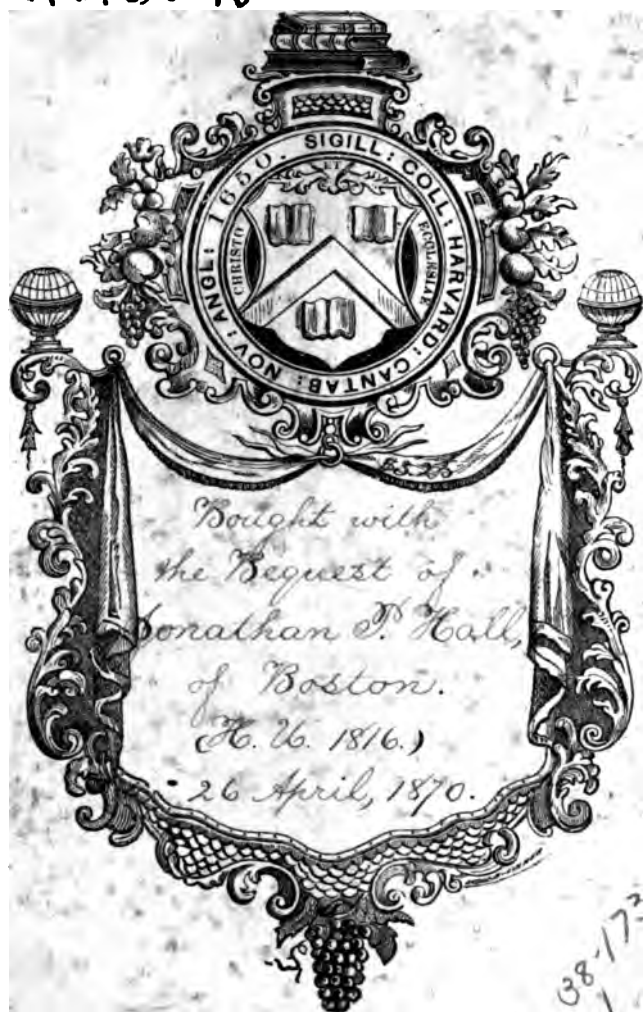 SIGILL: COLL: HARVARD: CANTAB: NOV: ANGL: 1650.
ET
CHRISTO
ECCLESIAE
Bought with
the Bequest of
Jonathan P. Hall,
of Boston.
(H. U. 1816.)
26 April, 1870.
38-173